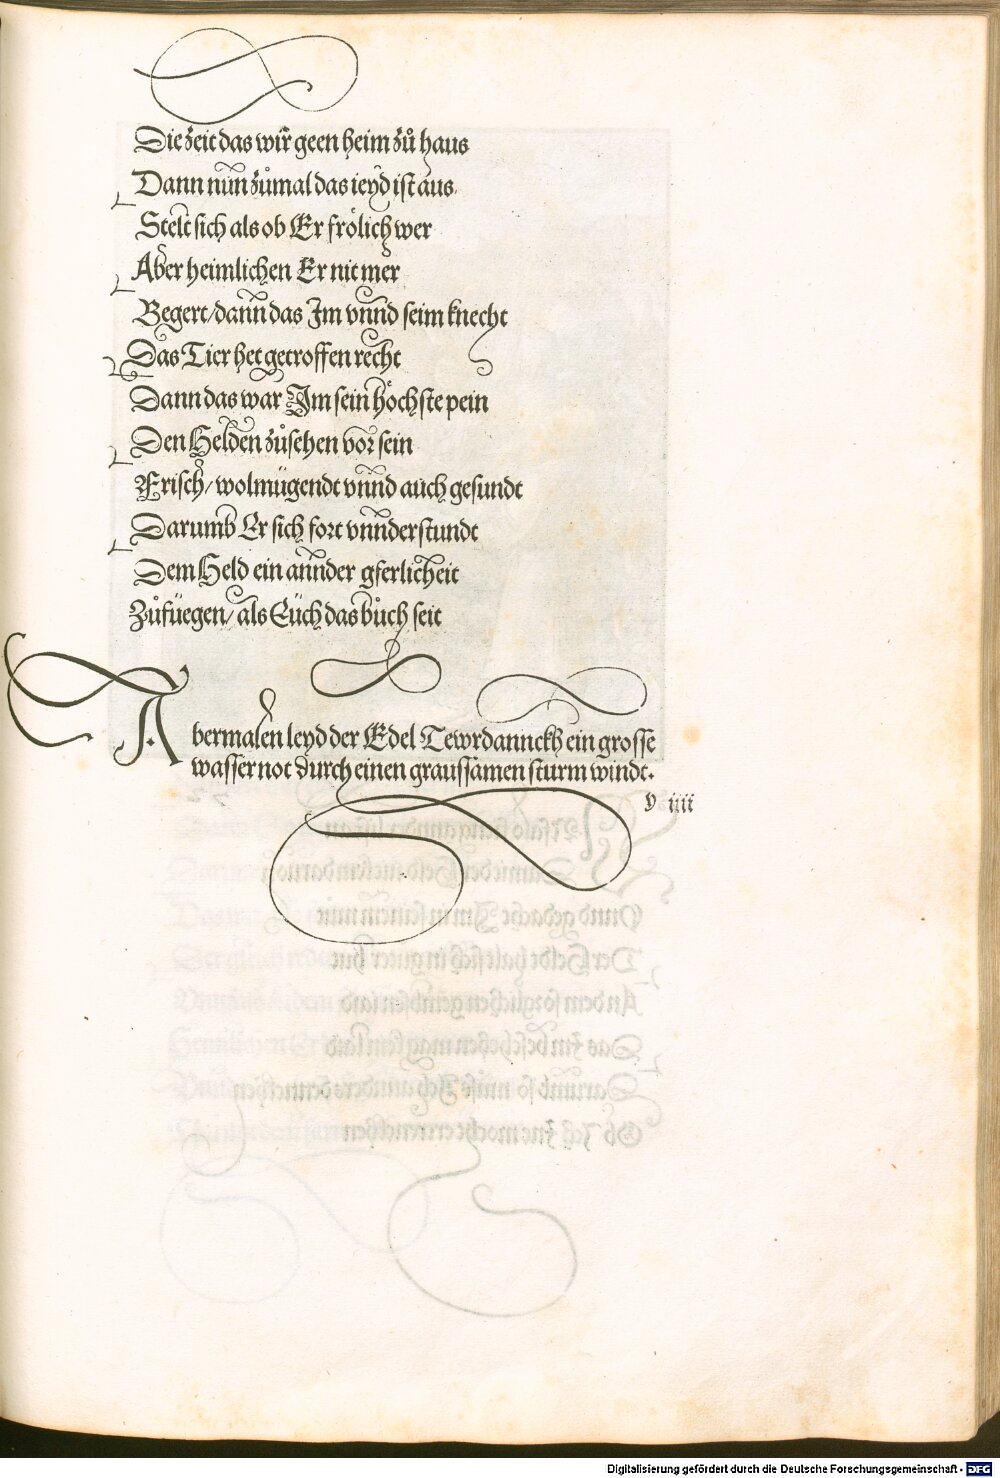 Die zeit das wir geen heim zů haus
Dann nun zůmal das ieyd ist aus
Stelt sich als ob Er frölich wer
Aber heimlichen Er nit mer
Begert/dann das Im vnnd seim knecht
Das Tier het getroffen recht
Dann das war Im sein höchste pein
Den Helden zůsehen vor sein
Frisch/wolmügendt vnnd auch gesundt
Darumb Er sich fort vnnderstundt
Dem Held ein annder gferlicheit
Zůfüegen/als Eüch das bůch seit
Abermalen leyd der Edel Tewrdannckh ein grosse
wassernot durch einen graussamen sturm windt.
v iiii
Digitalisierung gefördert durch die Deutsche Forschungsgemeinschaft - DFG